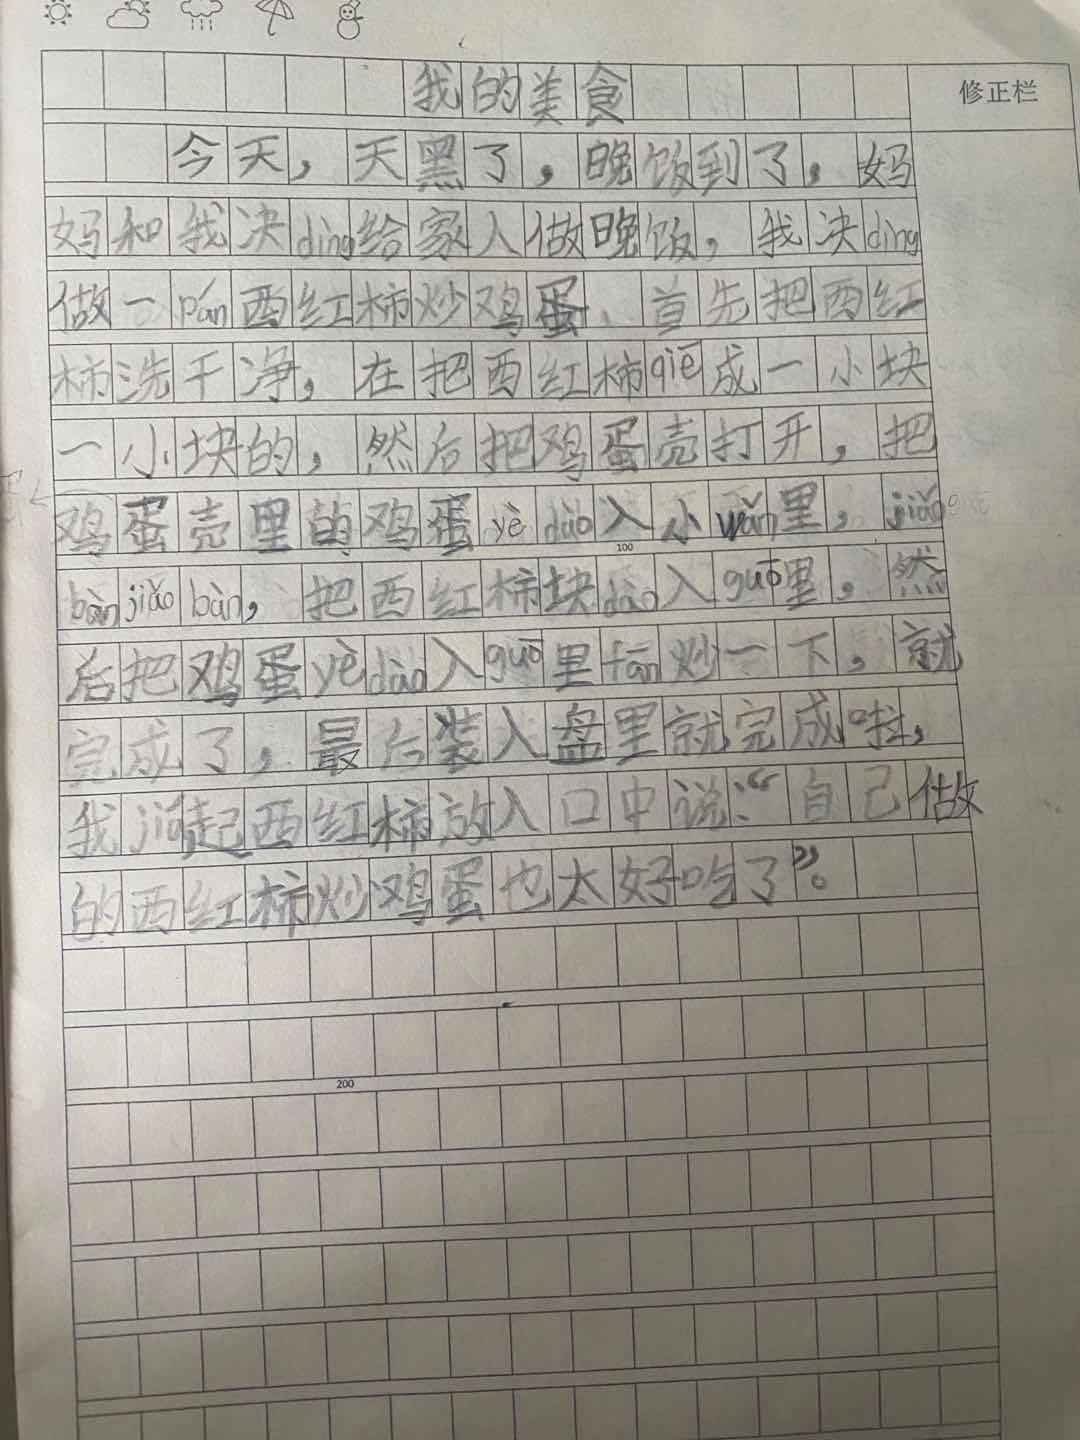 我的美食
修正栏
今天，天黑了，晚饭到了，妈
妈和我决dìng给家人做晚饭，我决dìng
做一pán西红柿炒鸡蛋、首先把西红
柿洗干净，在把西红柿qiē成一小块
一小块的，然后把鸡蛋壳打开，把
鸡蛋壳里的鸡蛋yè dào入小wǎn里，jiǎo
bàn jiǎo bàn，把西红柿块dào入guō里，然
100
后把鸡蛋yè dào入guō里fān炒一下，就
完成了，最后装入盘里就完成啦，
我jiā起西红柿放入口中说：“自己做
的西红柿炒鸡蛋也太好吃了”。
200